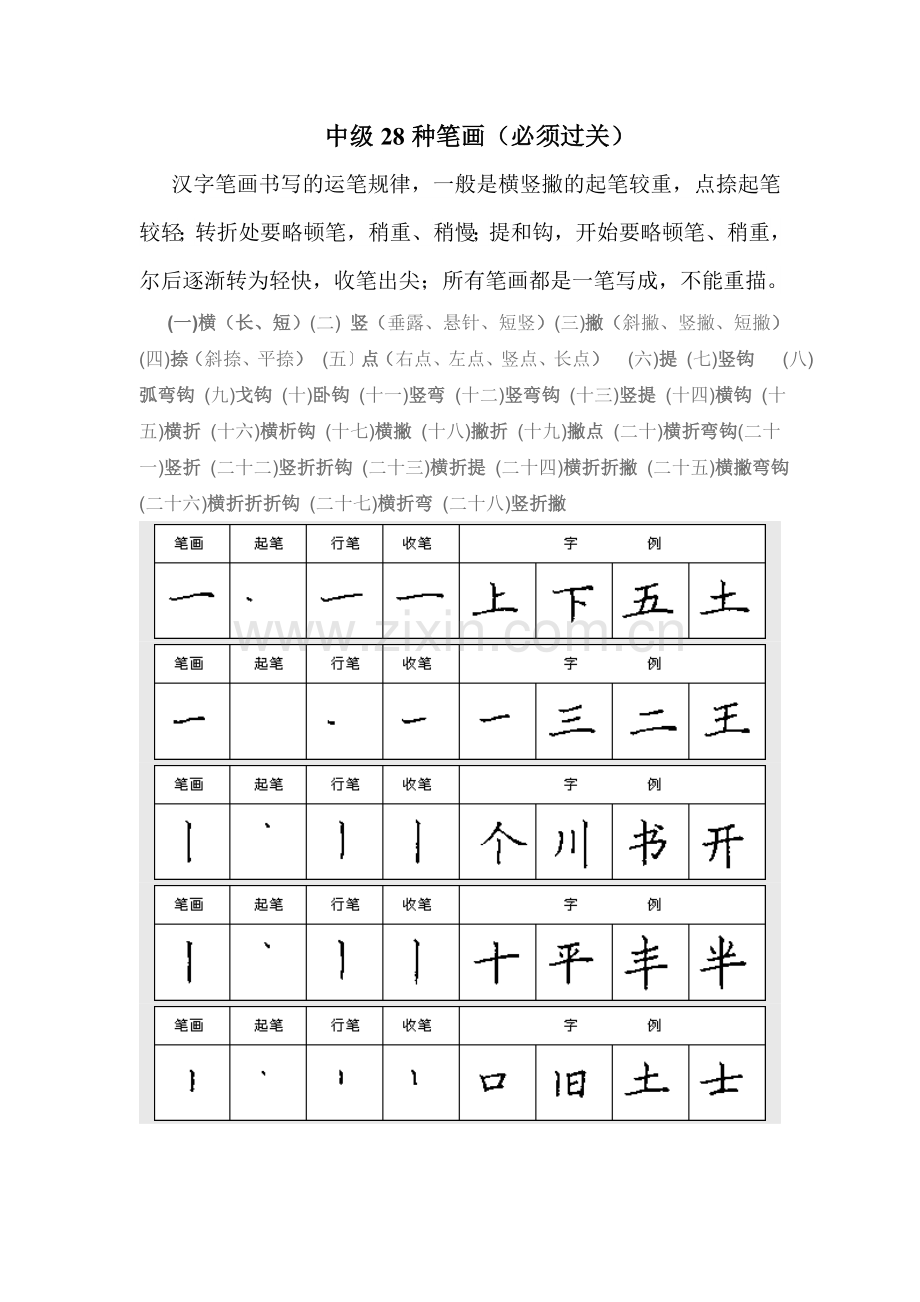 中级 28 种笔画（必须过关）
汉字笔画书写的运笔规律，一般是横竖撇的起笔较重，点捺起笔
较轻；转折处要略顿笔，稍重、稍慢；提和钩，开始要略顿笔、稍重，
尔后逐渐转为轻快，收笔出尖；所有笔画都是一笔写成，不能重描。
(一)横（长、短）(二) 竖（垂露、悬针、短竖）(三)撇（斜撇、竖撇、短撇）
(四)捺（斜捺、平捺） (五〕点（右点、左点、竖点、长点） (六)提 (七)竖钩 (八)
弧弯钩 (九)戈钩 (十)卧钩 (十一)竖弯 (十二)竖弯钩 (十三)竖提 (十四)横钩 (十
五)横折 (十六)横析钩 (十七)横撇 (十八)撇折 (十九)撇点 (二十)横折弯钩(二十
一)竖折 (二十二)竖折折钩 (二十三)横折提 (二十四)横折折撇 (二十五)横撇弯钩
(二十六)横折折折钩 (二十七)横折弯 (二十八)竖折撇
笔画 起笔 行笔 收笔 字 例
一 丶 一 一 上 下 五 土
www.zixin.com.cn
笔画 起笔 行笔 收笔 字 例
一 · 一 一 三 二 王
笔画 起笔 行笔 收笔 字 例
丨 丶 丨 丨 个 川 书 开
笔画 起笔 行笔 收笔 字 例
丨 丶 丨 丨 十 平 丰 半
笔画 起笔 行笔 收笔 字 例
丨 丶 丨 丨 口 旧 土 士